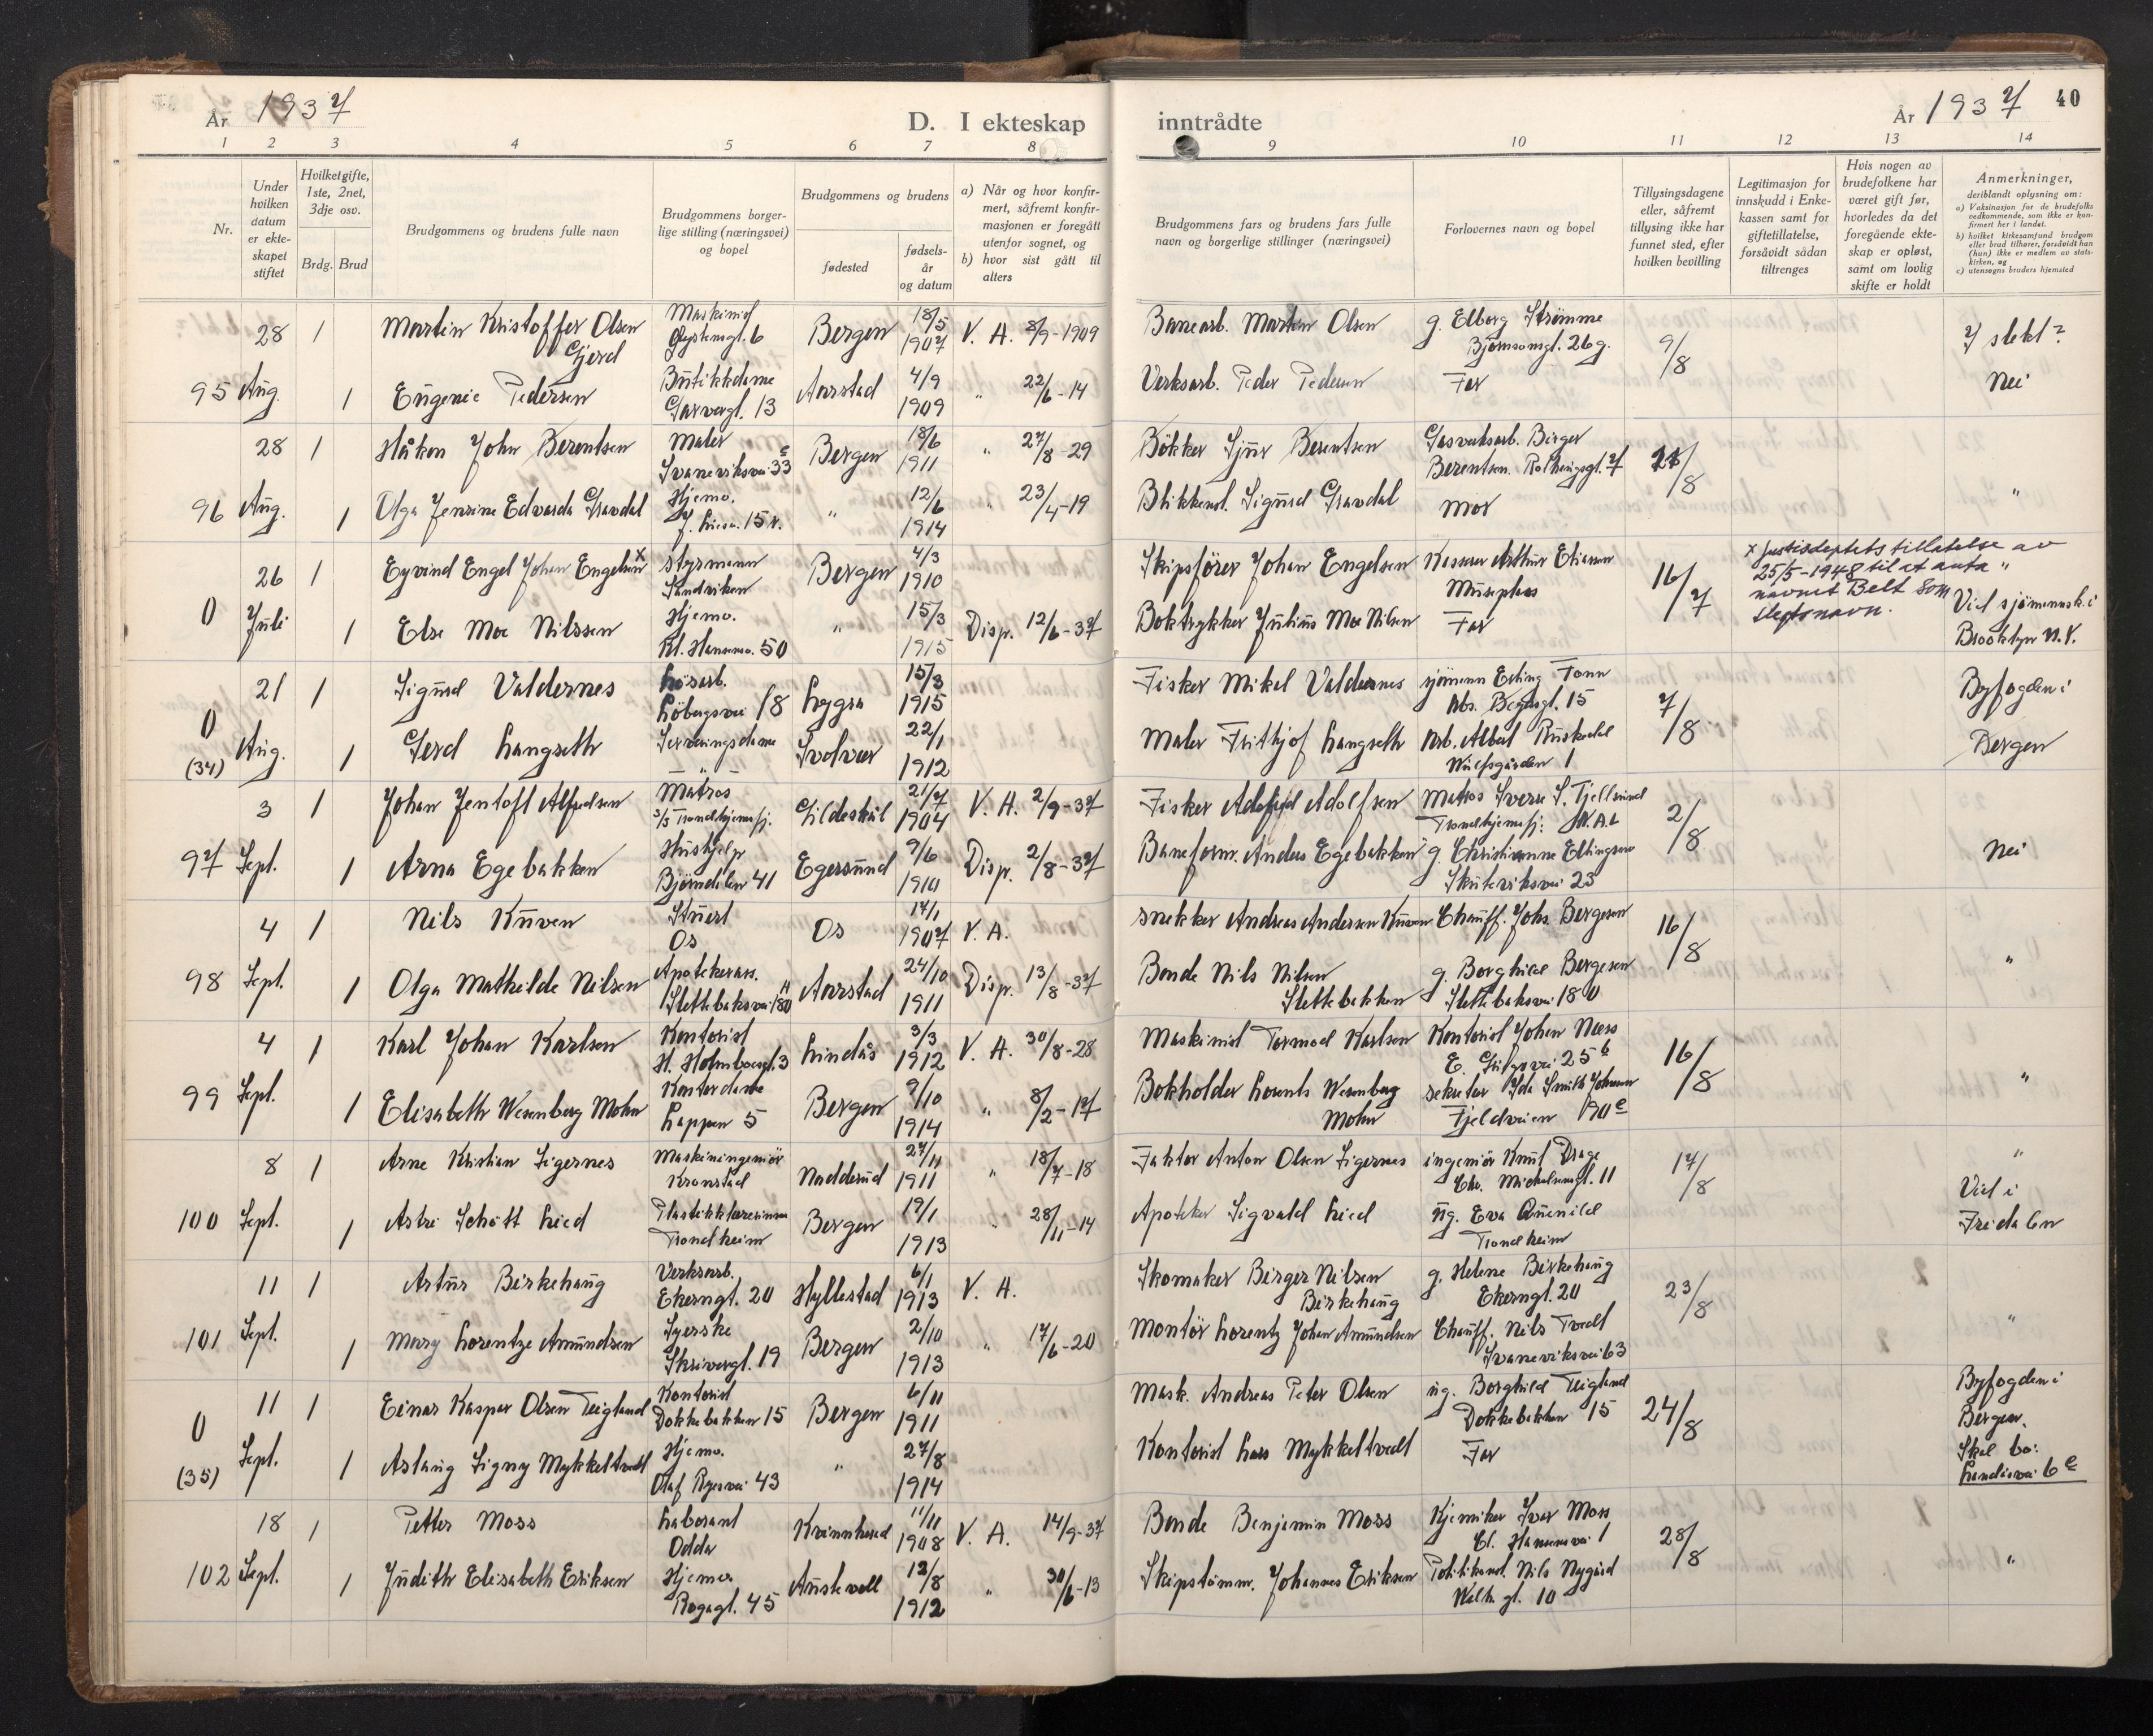 År 1937
D. I ekteskap inntrådte
År 1937 40
1 2 3 4 5 6 7 8 9 10 11 12 13 14
Nr.
Under hvilken datum er ekteskapet stiftet
Hvilket gifte, 1ste, 2net, 3dje osv.
Brdg. Brud
Brudgommens og brudens fulle navn
Brudgommens borgerlige stilling (næringsvei) og bopel
Brudgommens og brudens
fødested
fødselsår og datum
a) Når og hvor konfirmert, såfremt konfirmasjonen er foregått utenfor sognet, og
b) hvor sist gått til alters
Brudgommens fars og brudens fars fulle navn og borgerlige stillinger (næringsvei)
Forlovernes navn og bopel
Tillysingsdagene eller, såfremt tillysing ikke har funnet sted, efter hvilken bevilling
Legitimasjon for innskudd i Enkekassen samt for giftetillatelse, forsåvidt sådan tiltrenges
Hvis nogen av brudefolkene har været gift før, hvorledes da det foregående ekteskap er opløst, samt om lovlig skifte er holdt
Anmerkninger,
deriblandt oplysning om:
a) Vaksinasjon for de brudefolks vedkommende, som ikke er konfirmert her i landet.
b) hvilket kirkesamfund brudgom eller brud tilhører, forsåvidt han (hun) ikke er medlem av statskirken, og
c) utensogns bruders hjemsted
28 1 Martin Kristoffer Olsen Gjerd Maskinist 6 Bergen 18/5 1907 V. A. 8/9-1909 Banearb. Martin Olsen g. Elborg Strømme Bjørnsonsgt. 26 g. 9/8 I slekt?
95 Aug. 1 Eugenie Pedersen Butikkdame Garvergt. 13 Aarstad 4/9 1909 " 22/6-14 Verksarb. Peder Pedersen Far Nei
28 1 Håkon John Berentsen Maler Svaneviksvei 33 c Bergen 18/6 1911 " 27/8-29 Bökker Sjur Berentsen Gasverksarb. Birger Berentsen. 7 21/8
96 Aug. 1 Olga Jensine Edvarda Gravdal Hjemv. 15 " 12/6 1914 " 23/4-19 Blikkensl. Sigurd Gravdal Mor "
26 1 Eyvind Engel Johan Engelsen x Styrmann Sandviken Bergen 4/3 1910 Skipsfører Johan Engelsen Kasserer Arthur Museplass 16/7 x Justisdeptets tillatelse av 25/5-1948 til at anta navnet Belt som slektsnavn. "
0 Juli 1 Else Moe Nilssen Hjemv. Kl. Hansensv. 50 " 15/3 1915 Disp. 12/6-37 Boktrykker Julius Moe Nilsen Far Viet sjømannsk. i Brooklyn N.Y.
21 1 Sigurd Valdernes Løsarb. Løbergsvei 18 Lygra 15/3 1915 Fisker Mikal Valdernes sjømann Erling Tonn Abs. 15 7/8 Byfogden i
0 (34) Aug. 1 Gerd Langseth Serveringsdame " Svolvær 22/1 1912 Maler Frithjof Langseth Arb. Albert 1 Bergen
3 1 Johan Jentoft Alfredsen Matros s/s Trondhjemsfj. Gildeskål 21/7 1904 V. A. 2/9-37 Fisker Adolfsen Matros Sverre S. Fjellsund Trondhjemsfj. 2/8
97 Sept. 1 Arna Egebakken Hushjelp Bjørndalen 41 Egersund 9/6 1910 Disp. 2/8-37 Baneform. Anders Egebakken g. Christianne Ellingsen Skuteviksvei 23 Nei
4 1 Nils Kuven Stuert Os Os 14/1 1907 V. A. Snekker Andreas Andersen Kuven Chauff. Johs. Bergesen 16/8
98 Sept. 1 Olga Mathilde Nilsen Apotekerass. Slettebaksvei 180 Aarstad 24/10 1911 Disp. 13/8-37 Bonde Nils Nilsen Slettebakken g. Borghild Bergesen Slettebaksvei 180 "
4 1 Karl Johan Karlsen Kontorist H. Holmboesgt. 3 Lindås 3/3 1912 V. A. 30/8-28 Maskinist Tormod Karlsen Kontorist Johan Næss E. 25 b 16/8
99 Sept. 1 Elisabeth Wesenberg Mohn Kontordame Lappen 5 Bergen 9/10 1914 " 8/2-17 Bokholder Lorentz Wesenberg Mohn sekretær Ida Smith Johnsen Fjeldveien 190 c "
8 1 Arne Kristian Sigernes Maskiningeniör Kronstad Nadderud 27/11 1911 " 18/7-18 Faktor Anton Olsen Sigernes ingeniör Knut Drage Chr. Michelsensgt. 11 17/8 "
100 Sept. 1 Astri Schøtt Lied Plastikklærerinne Trondheim Bergen 19/1 1913 " 28/11-14 Apoteker Sigvald Lied ug. Eva Quenild Trondheim Viet i Fridalen
11 1 Artur Birkehaug Verksarb. Ekerngt. 20 Hyllestad 6/1 1913 V. A. Skomaker Birger Nilsen Birkehaug g. Helene Birkehaug Ekerngt. 20 23/8
101 Sept. 1 Mary Lorentze Amundsen Syerske Skrivergt. 19 Bergen 2/10 1913 " 17/6-20 Montör Lorentz Johan Amundsen Chauff. Nils Tvedt Svaneviksvei 63 "
11 1 Einar Kaspar Olsen Teigland Kontorist Dokkebakken 15 Bergen 6/11 1911 Mask. Andreas Peter Olsen ug. Borghild Teigland Dokkebakken 15 24/8 Byfogden i Bergen.
0 (35) Sept. 1 Aslaug Signy Mykkeltvedt Hjemv. Olaf Ryesvei 43 " 27/8 1914 Kontorist Lars Mykkeltvedt Far Skal bo: 6 c
18 1 Petter Moss Laborant Odda Kvinnherad 11/11 1908 V. A. 14/9-37 Bonde Benjamin Moss Kjemiker Ivar Moss 1 28/8
102 Sept. 1 Judith Elisabeth Eriksen Hjemv. Rogagt. 45 Austevoll 12/8 1912 " 30/6-13 Skipstömm. Johannes Eriksen Politikonst. Nils Nygård Welh. gt. 10 "